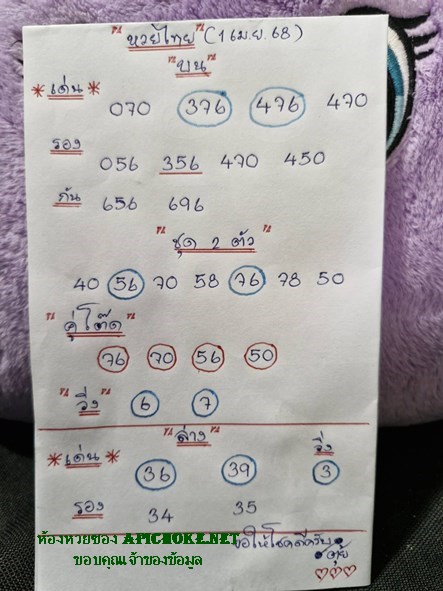 " หวยไทย " (1 เม.ย. 68)
" บน "
* เด่น * 070 376 476 470
รอง 056 356 470 450
กัน 656 696
" ชุด 2 ตัว "
40 56 70 58 76 78 50
" คู่โต๊ด "
76 70 56 50
" วิ่ง " 6 7
" ล่าง " วิ่ง
* เด่น * 36 39 3
รอง 34 35
ขอให้โชคดีครับ
ห้องหวยของ APICHOKE.NET
ขอบคุณเจ้าของข้อมูล